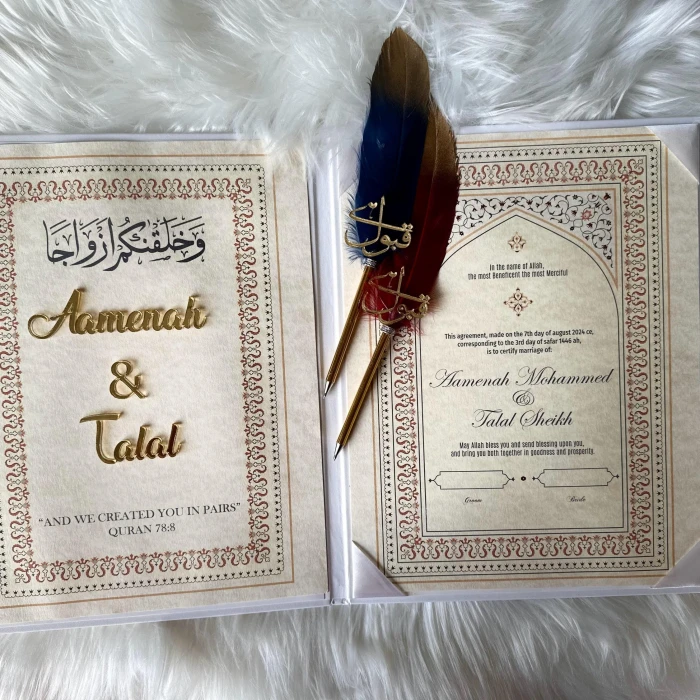 وَخَلَقْنَٰكُمْ أَزْوَٰجًا
Aamenah
&
Talal
"AND WE CREATED YOU IN PAIRS"
QURAN 78:8
قبول ہے
قبول ہے
In the name of Allah,
the most Beneficent the most Merciful
This agreement, made on the 7th day of august 2024 ce,
corresponding to the 3rd day of safar 1446 ah,
is to certify marriage of:
Aamenah Mohammed
&
Talal Sheikh
May Allah bless you and send blessing upon you,
and bring you both together in goodness and prosperity.
Groom
Bride